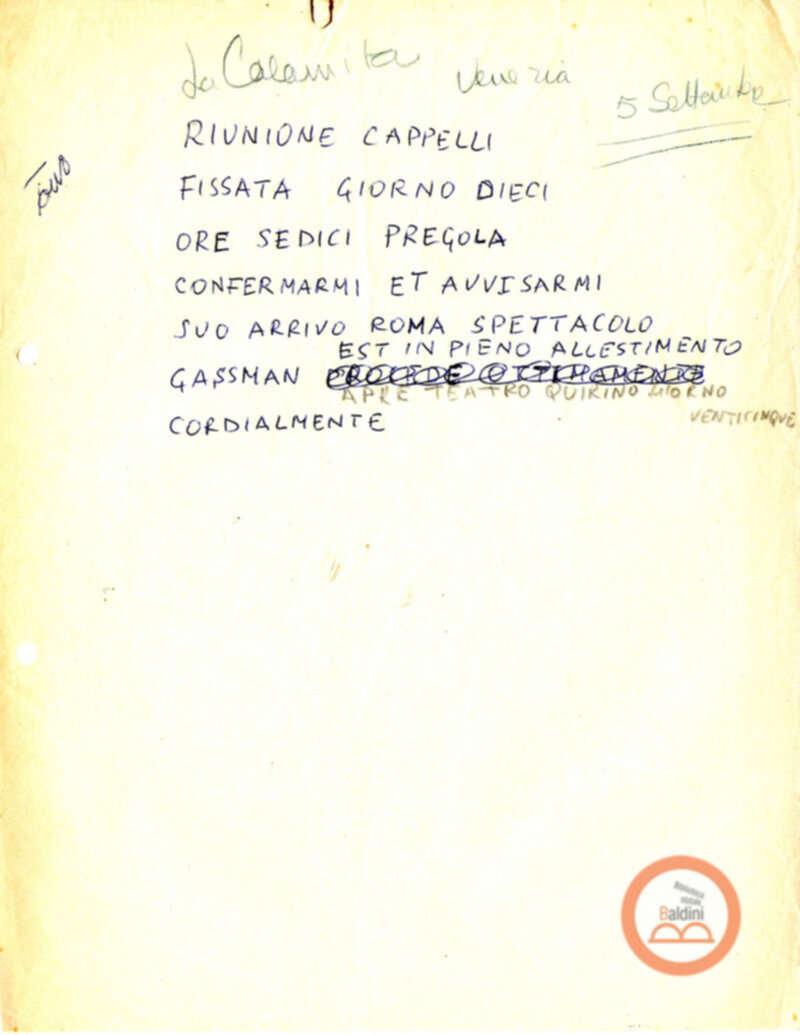 La Calamita Venezia
5 Settembre
RIUNIONE CAPPELLI
FISSATA GIORNO DIECI
ORE SEDICI PREGOLA
CONFERMARMI ET AVVISARMI
SUO ARRIVO ROMA SPETTACOLO
EST IN PIENO ALLESTIMENTO
GASSMAN PROCEDE OTTIMAMENTE
APRE TEATRO QUIRINO GIORNO
VENTICINQUE
CORDIALMENTE
Biblioteca
statale
Baldini